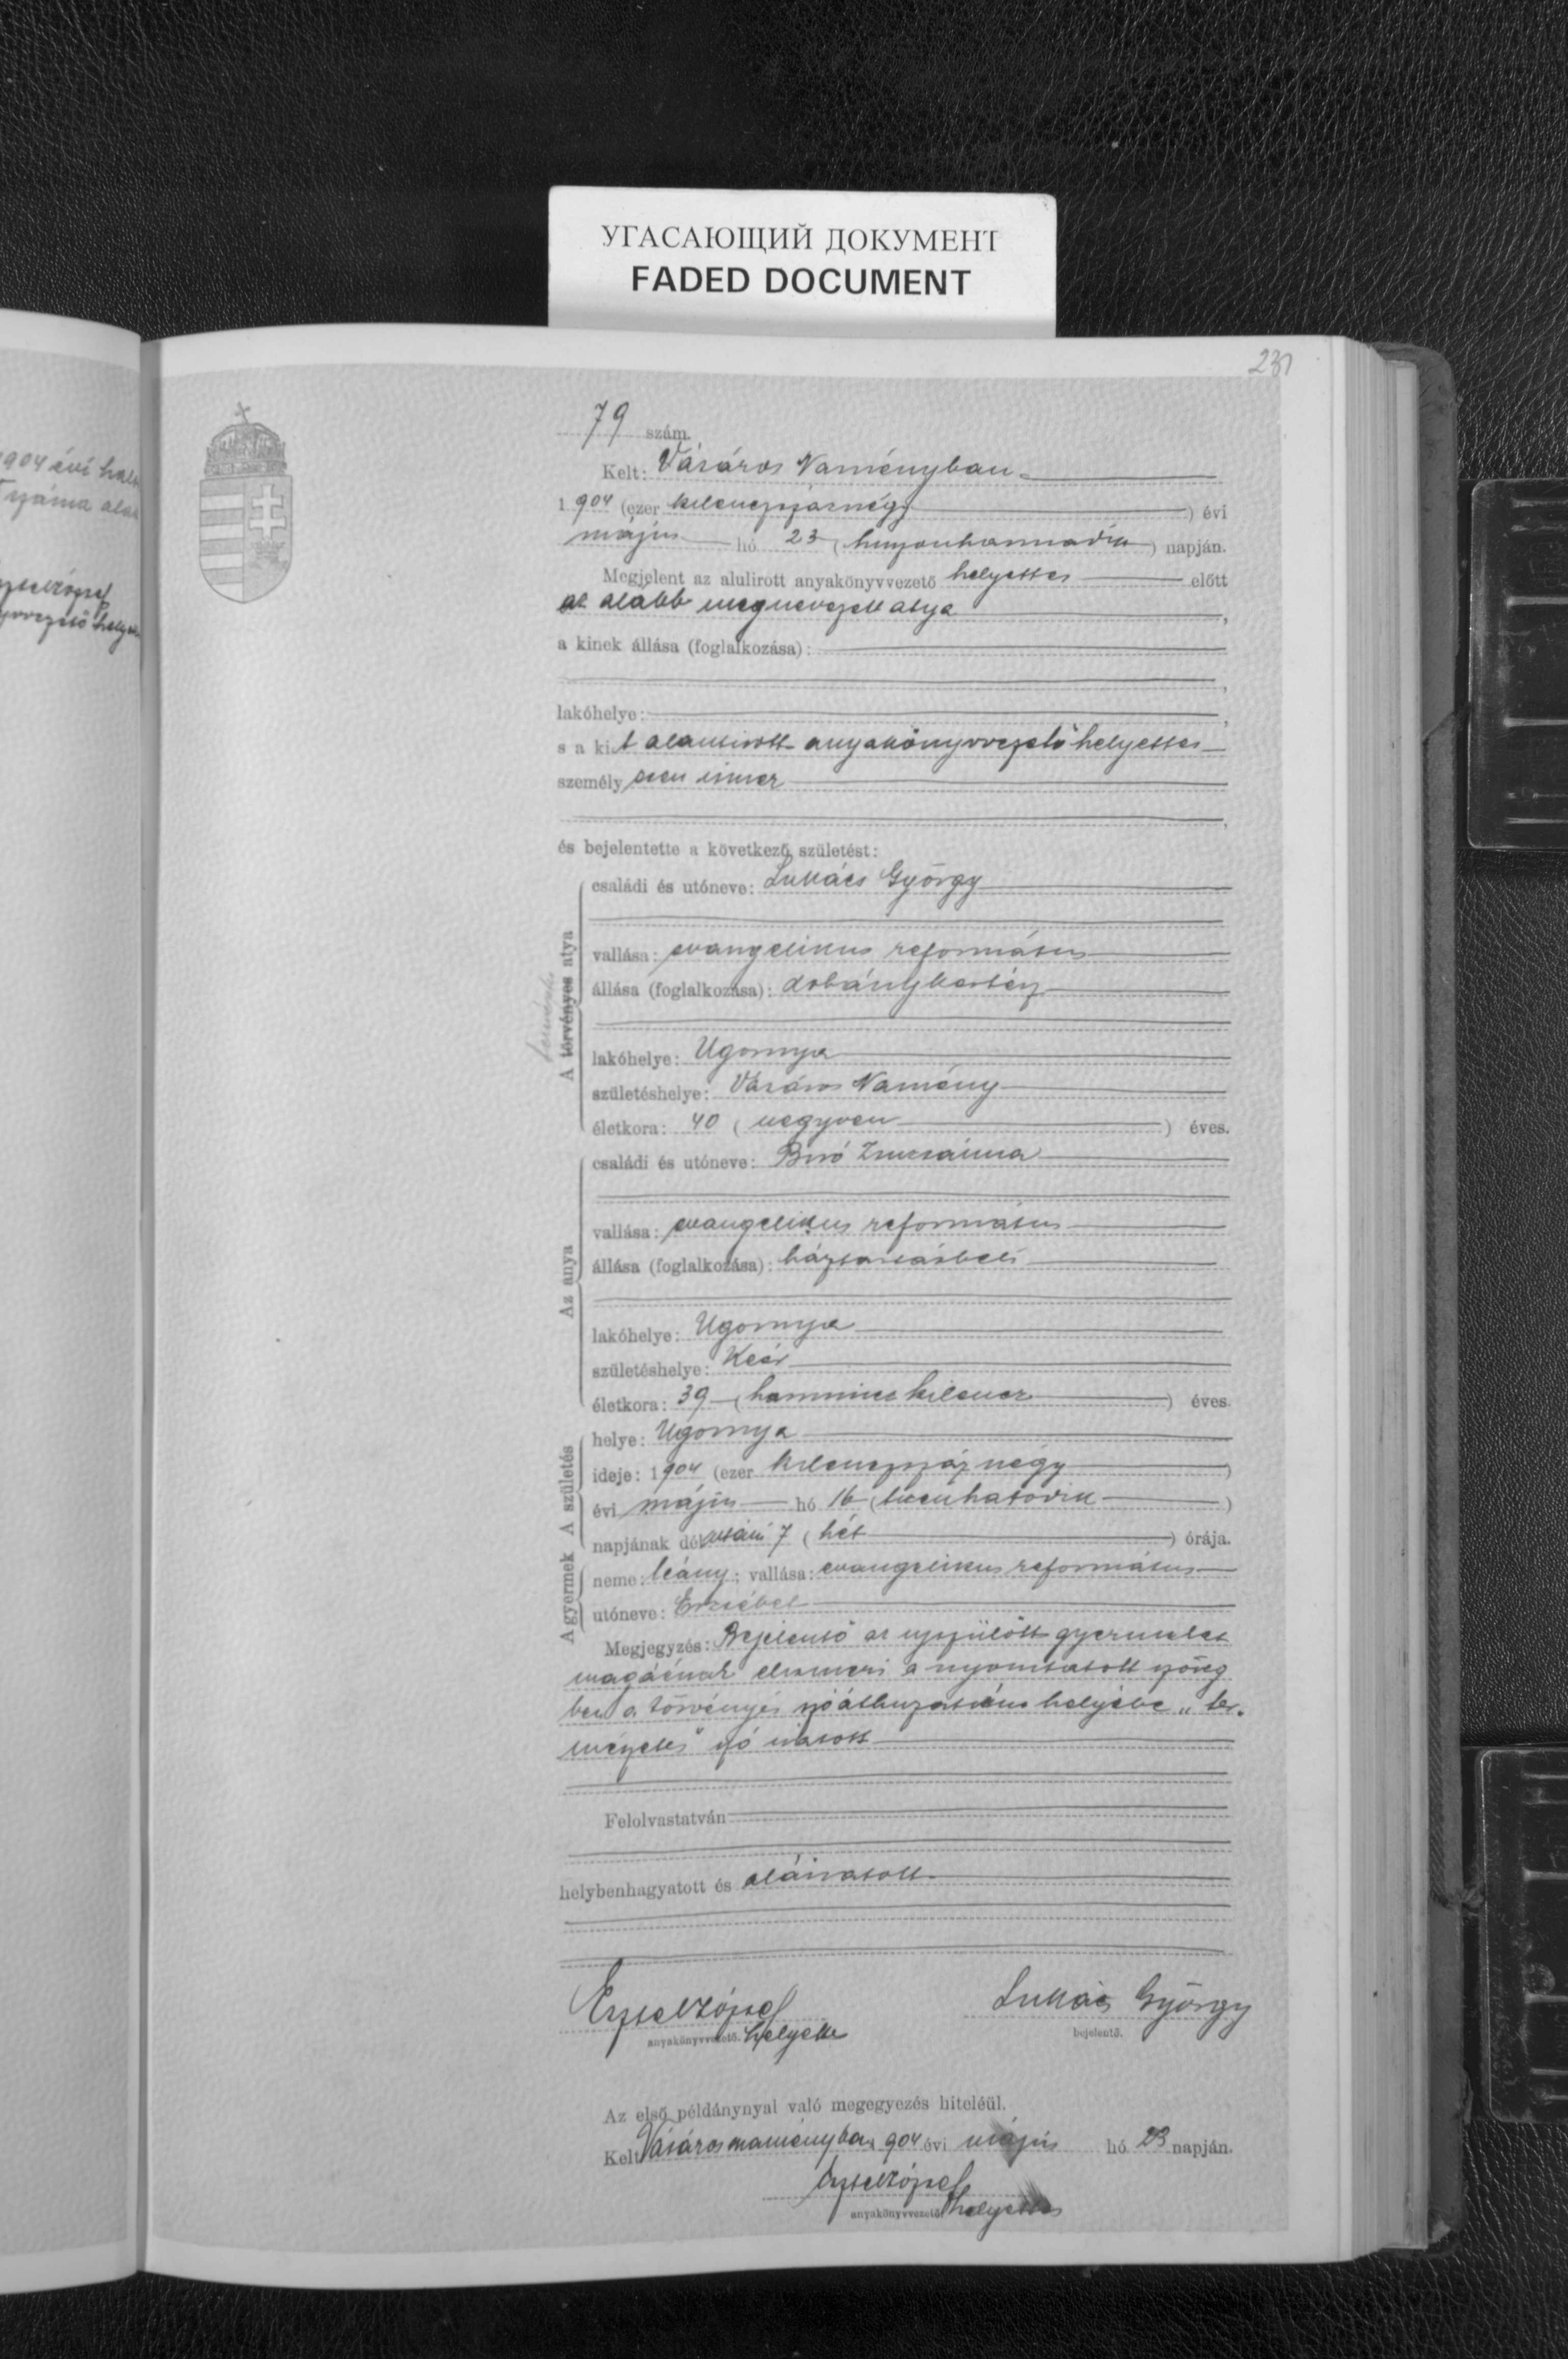 УГАСАЮЩИЙ ДОКУМЕНТ
FADED DOCUMENT
231
79 szám.
Kelt: Vásáros Naményban
1904 (ezer kilenczszáznégy) évi
május hó 23 (huszonharmadik) napján.
Megjelent az alulirott anyakönyvvezető helyettes előtt
az alább megnevezett atya,
a kinek állása (foglalkozása):
lakóhelye:
s a kit alantirott anyakönyvvezető helyettes
személyesen ismer
és bejelentette a következő születést:
A törvényes atya
családi és utóneve: Lukács György
vallása: evangelikus református
állása (foglalkozása): dohánykertész
lakóhelye: Ugornya
születéshelye: Vásáros Namény
életkora: 40 (negyven) éves.
Az anya
családi és utóneve: Biró Zsuzsánna
vallása: evangelikus református
állása (foglalkozása): háztartásbeli
lakóhelye: Ugornya
születéshelye:
életkora: 39 (harmincz kilencz) éves.
A születés
helye: Ugornya
ideje: 1904 (ezer kilenczszáz négy)
évi május hó 16 (tizenhatodik)
napjának délutáni 7 (hét) órája.
A gyermek
neme: leány; vallása: evangelikus református
utóneve: Erzsébet
Megjegyzés: Bejelentő az ujszülött gyermeket
magáénak elismeri a nyomtatott szöveg
ben a törvényes szó áthuzatván helyébe „ter-
mészetes" szó iratott
Felolvastatván
helybenhagyatott és aláiratott.
József Lukács György
anyakönyvvezető. helyettes bejelentő.
Az első példánynyal való megegyezés hiteléül.
Kelt Vásárosnaményban 1904 évi május hó 23 napján.
József
anyakönyvvezető helyettes
1904 évi
száma
József
helyettes